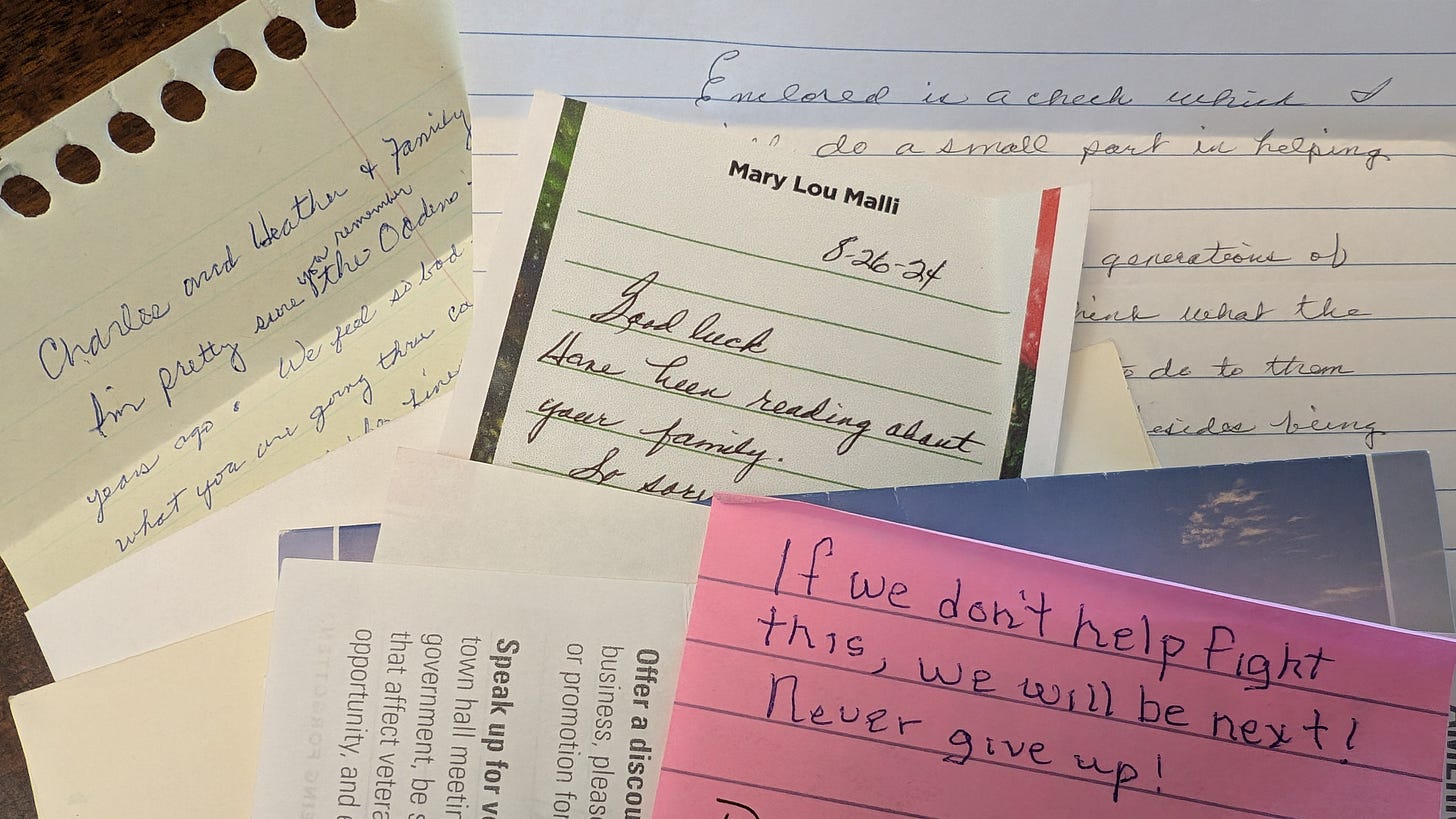 Charles and Heather & Family
I'm pretty sure you remember
the Oodens
years ago. We feel so bad
what you are going thru
Enclosed is a check which I
do a small part in helping
generations of
think what the
do to them
besides being
Mary Lou Malli
8-26-24
Good luck
Have been reading about
your family.
So
If we don't help fight
this, we will be next!
Never give up!
Offer a discou
business, pleas
or promotion for
Speak up for ve
town hall meetin
government, be s
that affect vetera
opportunity, and e